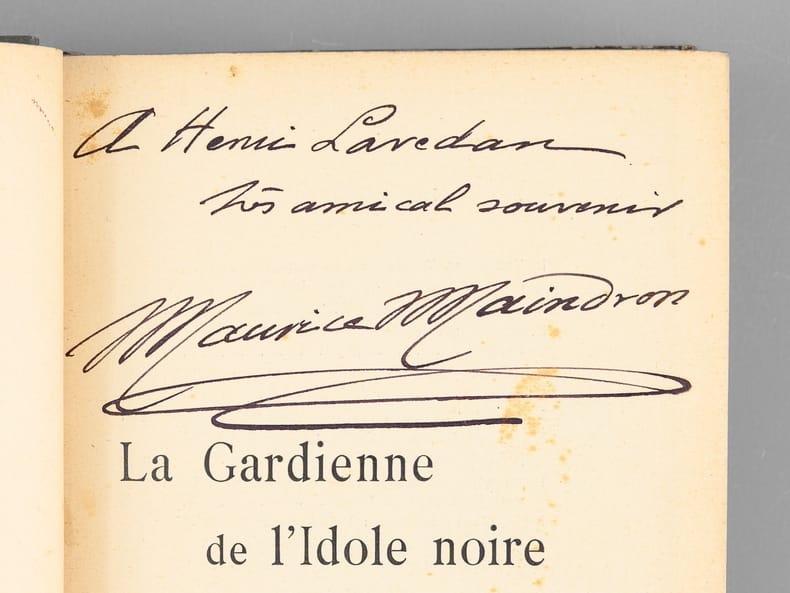 A Henri Lavedan
très amical souvenir
Maurice Maindron
La Gardienne
de l'Idole noire